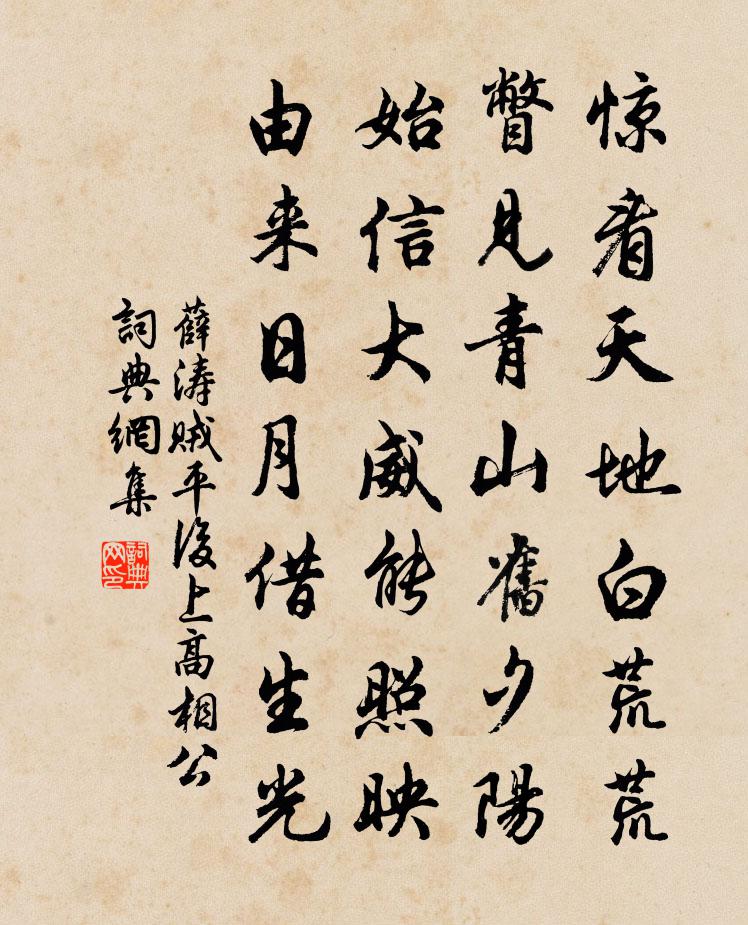 惊看天地白荒荒
瞥见青山舊夕陽
始信大威能照映
由来日月借生光
薛濤贼平後上高相公
詞典網集
詞典网印